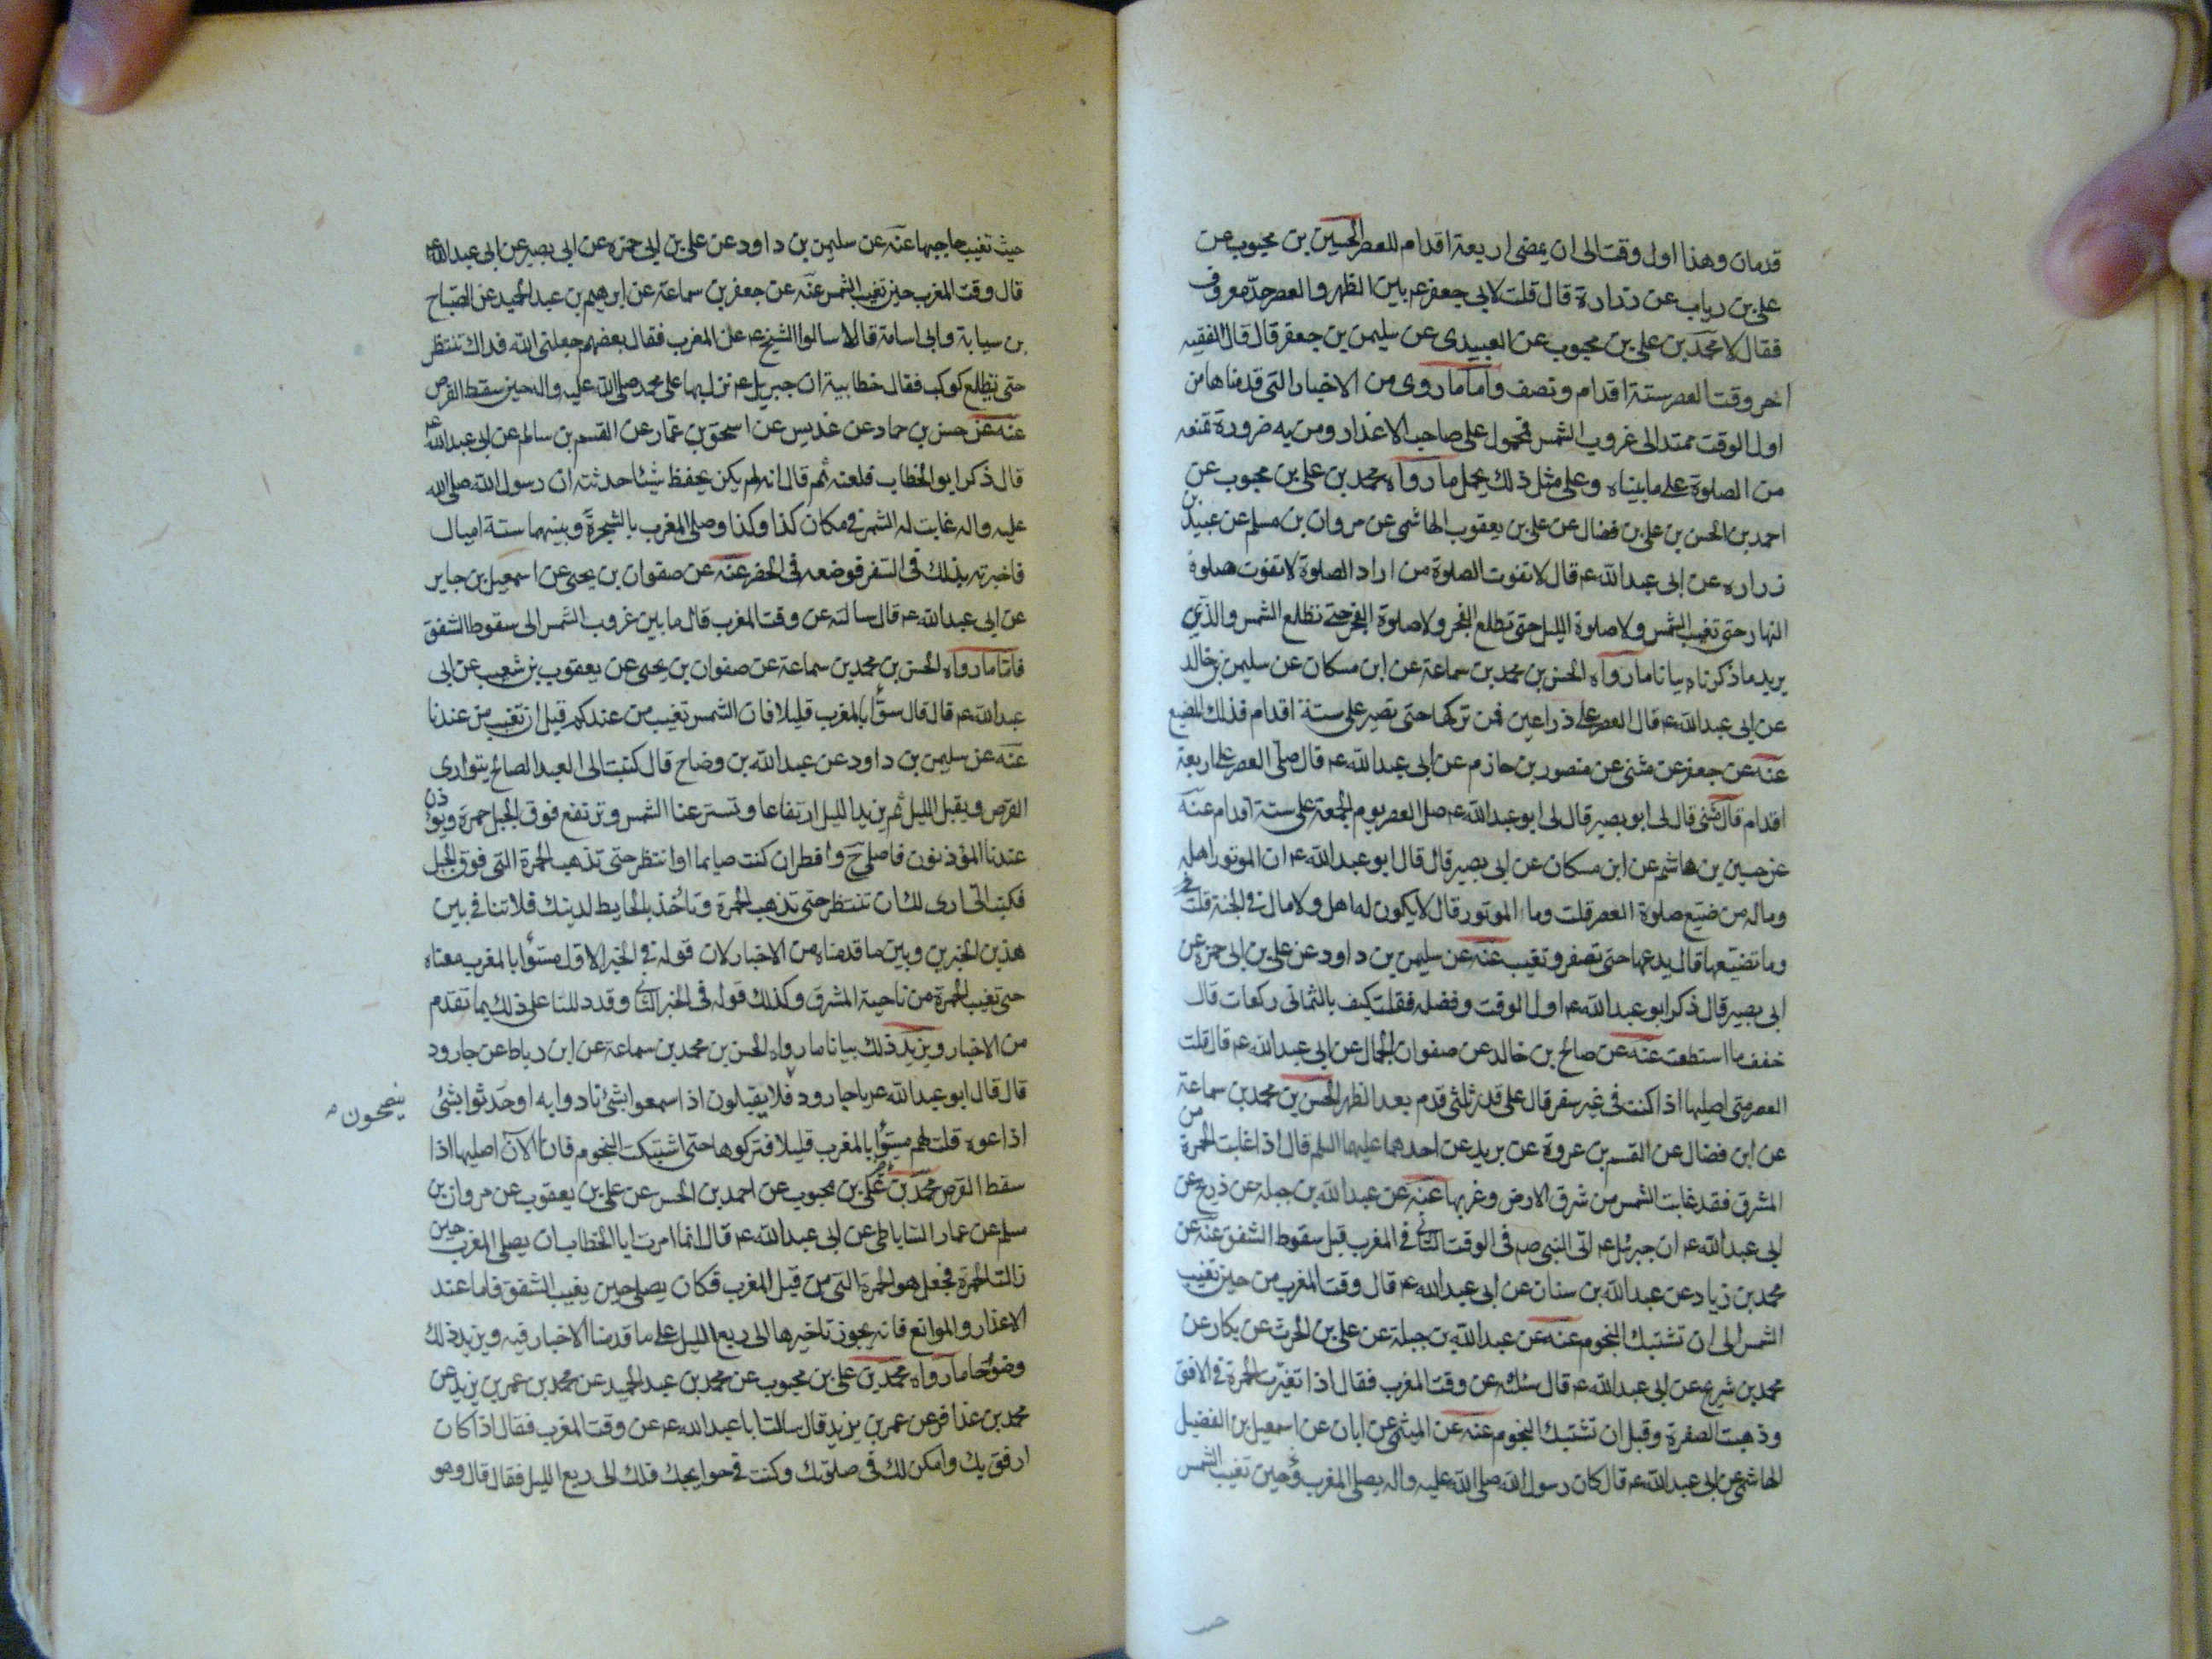 قدمان وهذا اول وقت الى ان يمضى اربعة اقدام للعصر الحسين بن محبوب عن
على بن رياب عن زرارة قال قلت لابى جعفر ع بين الظهر والعصر حد معروف
فقال لا محمد بن على بن محبوب عن العبيدى عن سليمن بن جعفر قال قال الفقيه
اخر وقت العصر ستة اقدام ونصف واما ما روى من الاخبار التى قدمناها من
اول الوقت ممتد الى غروب الشمس فمحمول على صاحب الاعذار ومن به ضرورة تمنعه
من الصلوة على ما بيناه وعلى مثل ذلك يحمل ما رواه محمد بن على بن محبوب عن
احمد بن الحسن بن على بن فضال عن على بن يعقوب الهاشمى عن مروان بن مسلم عن عبيد بن
زراره عن ابى عبد الله ع قال لا تفوت الصلوة من اراد الصلوة لا تفوت صلوة
النهار حتى تغيب الشمس ولا صلوة الليل حتى تطلع الفجر ولا صلوة الفجر حتى تطلع الشمس والذى
يريد ما ذكرناه بيانا ما رواه الحسن بن محمد بن سماعة عن ابن مسكان عن سليمن بن خالد
عن ابى عبد الله ع قال العصر على ذراعين فمن تركها حتى تصير على ستة اقدام فذلك المضيع
عنه عن جعفر عن مثنى عن منصور بن حازم عن ابى عبد الله ع قال صلى العصر على اربعة
اقدام قال مثنى قال لى ابو بصير قال لى ابو عبد الله ع صل العصر يوم الجمعة على ستة اقدام عنه
عن حسين بن هاشم عن ابن مسكان عن ابى بصير قال قال ابو عبد الله ع ان الموتور اهله
وماله من ضيع صلوة العصر قلت وما الموتور قال لا يكون له اهل ولا مال فى الجنة قلت
وما تضيعها قال يدعها حتى تصفر وتغيب عنه عن سليمن بن داود عن على بن ابى حمزه عن
ابى بصير قال ذكر ابو عبد الله ع اول الوقت وفضله فقلت كيف بالثمانى ركعات قال
خفف ما استطعت عنه عن صالح بن خالد عن صفوان الجمال عن ابى عبد الله ع قال قلت
العصر متى اصليها اذا كنت فى غير سفر قال على قدر ثلثى قدم بعد الظهر الحسن بن محمد بن سماعة
عن ابن فضال عن القسم بن عروة عن بريد عن احدهما عليهما السلم قال اذا غابت الحمرة من
المشرق فقد غابت الشمس من شرق الارض وغربها عنه عن عبد الله بن جبله عن ذريح عن
ابى عبد الله ع ان جبرئل ع اتى النبى ص فى الوقت الثانى فى المغرب قبل سقوط الشفق عنه عن
محمد بن زياد عن عبد الله بن سنان عن ابى عبد الله ع قال وقت المغرب من حين تغيب
الشمس الى ان تشتبك النجوم عنه عن عبد الله بن جبلة عن على بن الحرث عن بكار عن
محمد بن شريح عن ابى عبد الله ع قال سئلته عن وقت المغرب فقال اذا تغيرت الحمرة فى الافق
وذهبت الصفرة وقبل ان تشتبك النجوم عنه عن الميثمى عن ابان عن اسمعيل بن الفضيل
الهاشمى عن ابى عبد الله ع قال كان رسول الله صلى الله عليه واله يصلى المغرب حين تغيب الشمس
حيث تغيب حاجبها عنه عن سليمن بن داود عن على بن ابى حمزه عن ابى بصير عن ابى عبد الله ع
قال وقت المغرب حين تغيب الشمس عنه عن جعفر بن سماعة عن ابرهيم بن عبد الحميد عن الصباح
بن سيابة وابى اسامة قالا سالوا الشيخ ع عن المغرب فقال بعضهم جعلنى الله فداك ننتظر
حتى يطلع كوكب فقال خطابية ان جبريل ع نزل بها على محمد صلى الله عليه واله حين سقط القرص
عنه عن حسن بن حماد عن عديس عن اسحق بن عمار عن القسم بن سالم عن ابى عبد الله ع
قال ذكر ابو الخطاب فلعنه ثم قال انه لم يكن يحفظ شيئا حدثته ان رسول الله صلى الله
عليه واله غابت له الشمس فى مكان كذا وكذا وصلى المغرب بالشجرة وبينهما ستة اميال
فاخبرته بذلك فى السفر فوضعه فى الحضر عنه عن صفوان بن يحيى عن اسمعيل بن جابر
عن ابى عبد الله ع قال سالته عن وقت المغرب قال ما بين غروب الشمس الى سقوط الشفق
فاما ما رواه الحسن بن محمد بن سماعة عن صفوان بن يحيى عن يعقوب بن شعيب عن ابى
عبد الله ع قال قال مسوا بالمغرب قليلا فان الشمس تغيب من عندكم قبل ان تغيب من عندنا
عنه عن سليمن بن داود عن عبد الله بن وضاح قال كتبت الى العبد الصالح يتوارى
القرص ويقبل الليل ثم يزيد الليل ارتفاعا وتستتر عنا الشمس وترتفع فوق الجبل حمرة ويؤذن
عندنا المؤذنون فاصلى ح وافطر ان كنت صايما او انتظر حتى تذهب الحمرة التى فوق الجبل
فكتب الى ارى لك ان تنتظر حتى تذهب الحمرة وتاخذ بالحايط لدينك فلا تنافى بين
هذين الخبرين وبين ما قدمناه من الاخبار لان قوله فى الخبر الاول مسوا بالمغرب معناه
حتى تغيب الحمرة من ناحية المشرق وكذلك قوله فى الخبر الثانى وقد دللنا على ذلك بما تقدم
من الاخبار ويزيد ذلك بيانا ما رواه الحسن بن محمد بن سماعة عن ابن رباط عن جارود
قال قال ابو عبد الله ع يا جارود فلا يقبلون اذا سمعوا بشئ نادوا به او حدثوا بشئ
ينصحون
اذاعوه قلت لهم مسوا بالمغرب قليلا فتركوها حتى اشتبكت النجوم فانا الآن اصليها اذا
سقط القرص محمد بن على بن محبوب عن احمد بن الحسن عن على بن يعقوب عن مروان بن
مسلم عن عمار الساباطى عن ابى عبد الله ع قال انما امرت ابا الخطاب ان يصلى المغرب حين
زالت الحمرة فجعل هو الحمرة التى من قبل المغرب فكان يصلى حين يغيب الشفق فاما عند
الاعذار والموانع فانه يجوز تاخيرها الى ربع الليل على ما قدمنا الاخبار فيه ويزيد ذلك
وضوحا ما رواه محمد بن على بن محبوب عن محمد بن عبد الحميد عن محمد بن عمر بن يزيد عن
محمد بن عذافر عن عمر بن يزيد قال سالت ابا عبد الله ع عن وقت المغرب فقال اذا كان
ارفق بك وامكن لك فى صلوتك وكنت فى حوايجك فلك الى ربع الليل فقال قال وهو